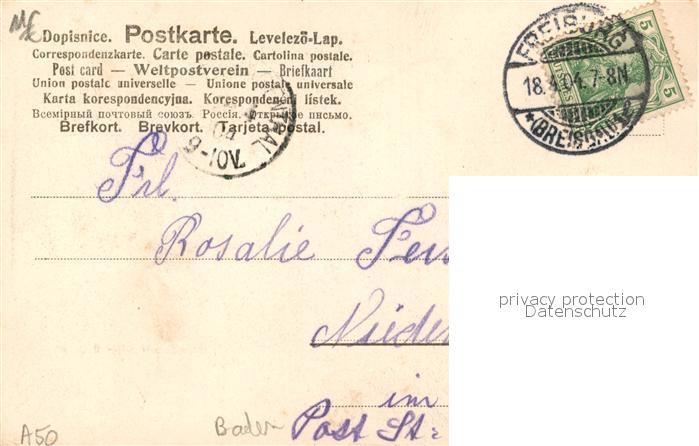 Dopisnice. Postkarte. Levelező-Lap.
Correspondenzkarte. Carte postale. Cartolina postale.
Post card — Weltpostverein — Briefkaart
Union postale universelle — Unione postale universale
Karta korespondencyjna. Korespondenční lístek.
Всемірный почтовый союзъ. Россія. Открытое письмо.
Brefkort. Brevkort. Tarjeta postal.
FREIBURG
18. 04. 7-8N
* (BREISGAU) *
5
5
10V.
Frl.
Rosalie
im
Post St:
privacy protection
Datenschutz
A50
Baden